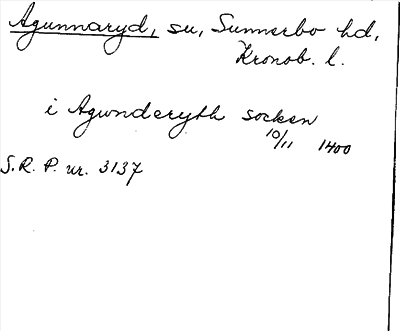 Agunnaryd, sn, Sunnerbo hd,
Kronob. l.
i Agwnderyth socken
10/11 1400
S.R.P. nr. 3137